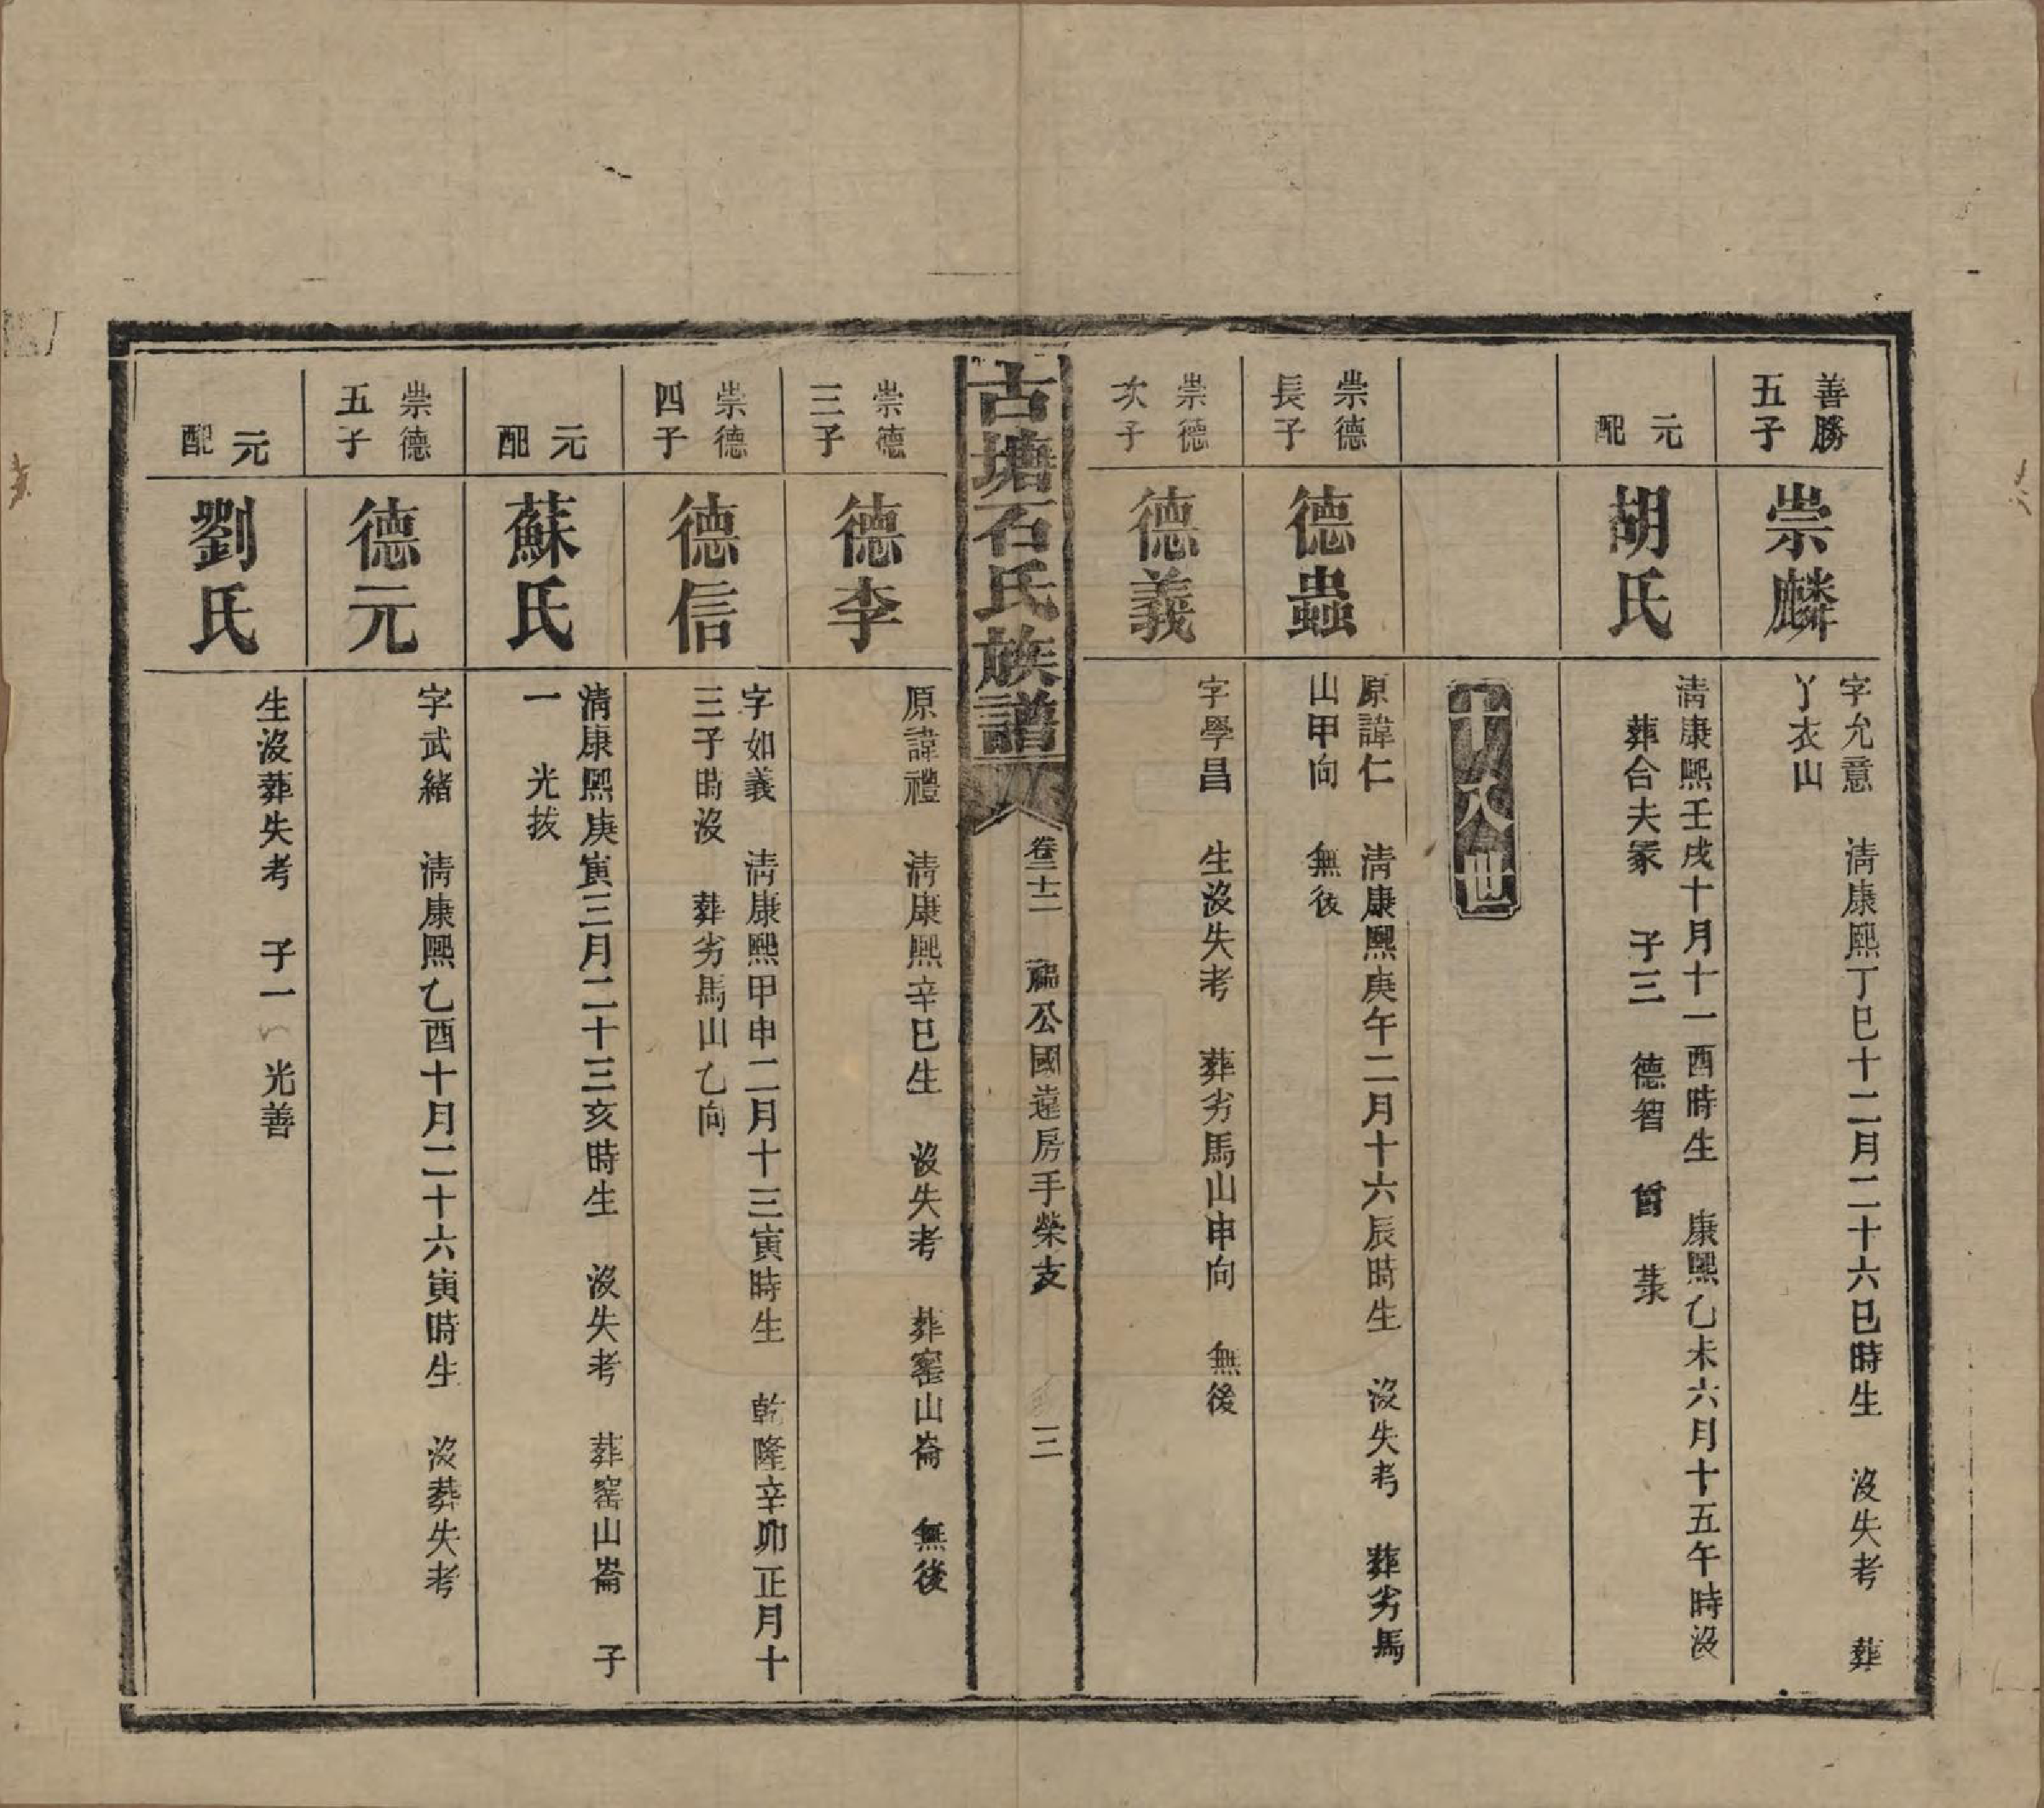 善勝
五子
崇麟
字允意　淸康熙丁巳十二月二十六巳時生　沒失考　葬
丫衣山
元
配
胡氏
淸康熙壬戌十月十一酉時生　康熙乙未六月十五午時沒
葬合夫冢　子三　德智
十八世
崇德
長子
德蟲
原諱仁　淸康熙庚午二月十六辰時生　沒失考　葬劣馬
山甲向　無後
崇德
次子
德義
字學昌　生沒失考　葬劣馬山申向　無後
古塘石氏族譜
卷二十二　福公國遠房手榮支　三
崇德
三子
德李
原諱禮　淸康熙辛巳生　沒失考　葬窰山崙　無後
崇德
四子
德信
字如義　淸康熙甲申二月十三寅時生　乾隆辛卯正月十
三子時沒　葬劣馬山乙向
元
配
蘇氏
淸康熙庚寅三月二十三亥時生　沒失考　葬窰山崙　子
一　光拔
崇德
五子
德元
字武緒　淸康熙乙酉十月二十六寅時生　沒葬失考
元
配
劉氏
生沒葬失考　子一　光善